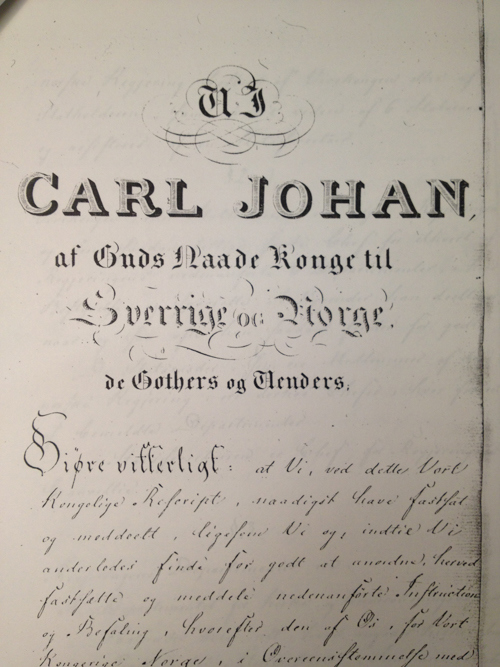 VI
CARL JOHAN,
af Guds Naade Konge til
Sverrige og Norge,
de Gothers og Venders,
Giøre vitterligt: at Vi, ved dette Vort
Kongelige Rescript, naadigst have fastsat
og meddeelt, ligesom Vi og, indtil Vi
anderledes finde for godt at anordne, herved
fastsætte og meddele nedenanförte Instruction
og Befaling, hvorefter den af Os, for Vort
Kongerige Norge, i Overeensstemmelse med